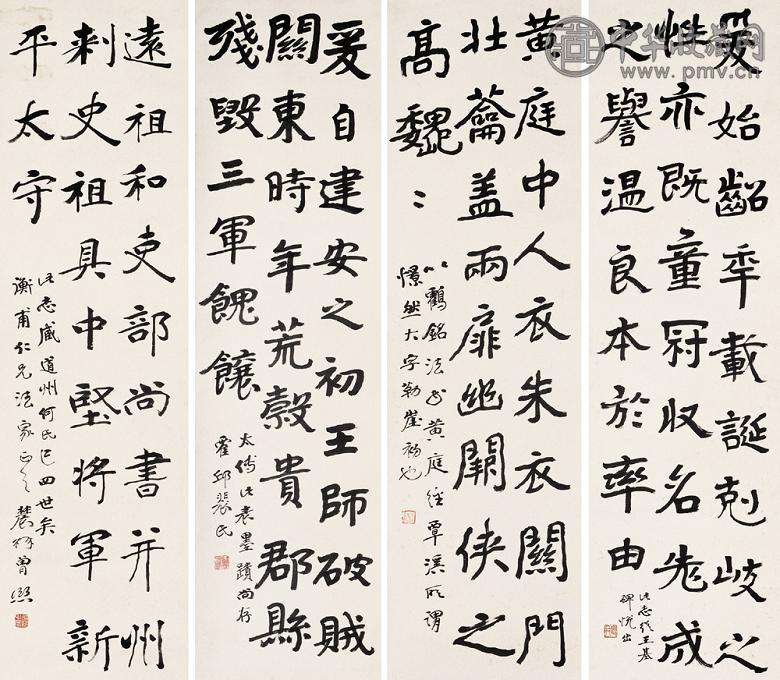 爰始齠年載誕剋岐之
性亦既童冠收名老成
之譽溫良本於率由
此志從王基
碑悅出
黃庭中人衣朱衣關門
壯蘥蓋兩扉幽闕俠之
高巍〻
以鶴銘法書黃庭經覃溪所謂
憬然大字勒崖初也
爰自建安之初王師破賊
關東時年荒穀貴郡縣
殘毀三軍餽饟
太傅此表墨蹟尚存
霍邱裴氏
遠祖和吏部尚書并州
刺史祖具中堅將軍新
平太守
此志藏道州何氏已四世矣
衡甫仁兄法家正之 農髯曾熙
中华收藏网
www.pmv.cn